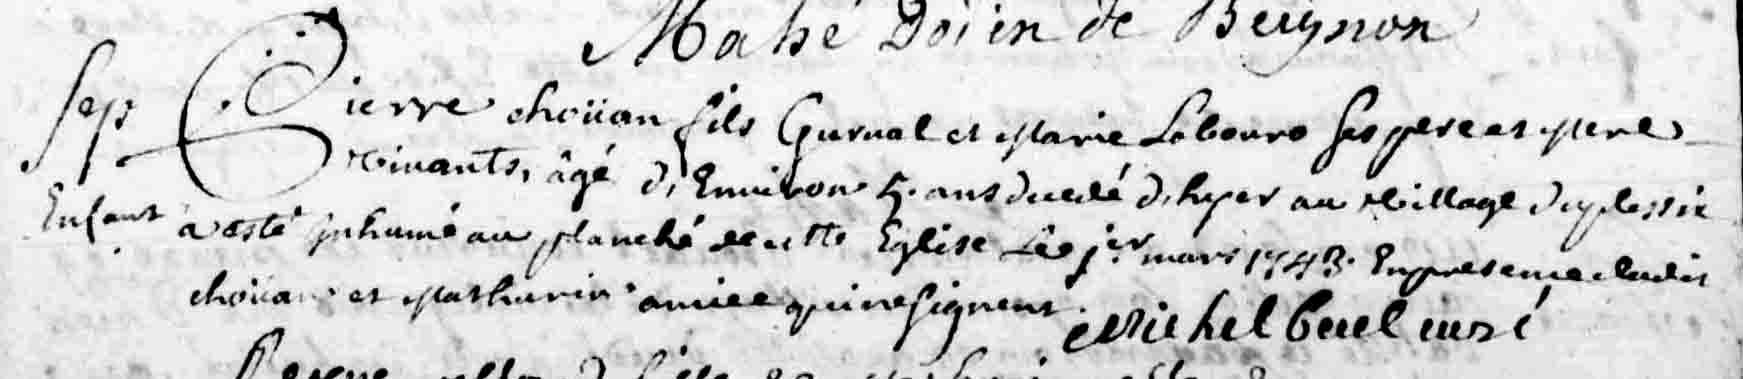 Mahé Doien de Beignon
Sep Pierre choüan fils Gurual et Marie Labouro ses pere et mere
vivants, âgé d'Environ 5. ans decedé d'hyer au village du plessix
Enfant a esté inhumé au planché de cette Eglise Le jer mars 1743. En presence dudit
choüan et Mathurin amice qui ne signent. Michel curé